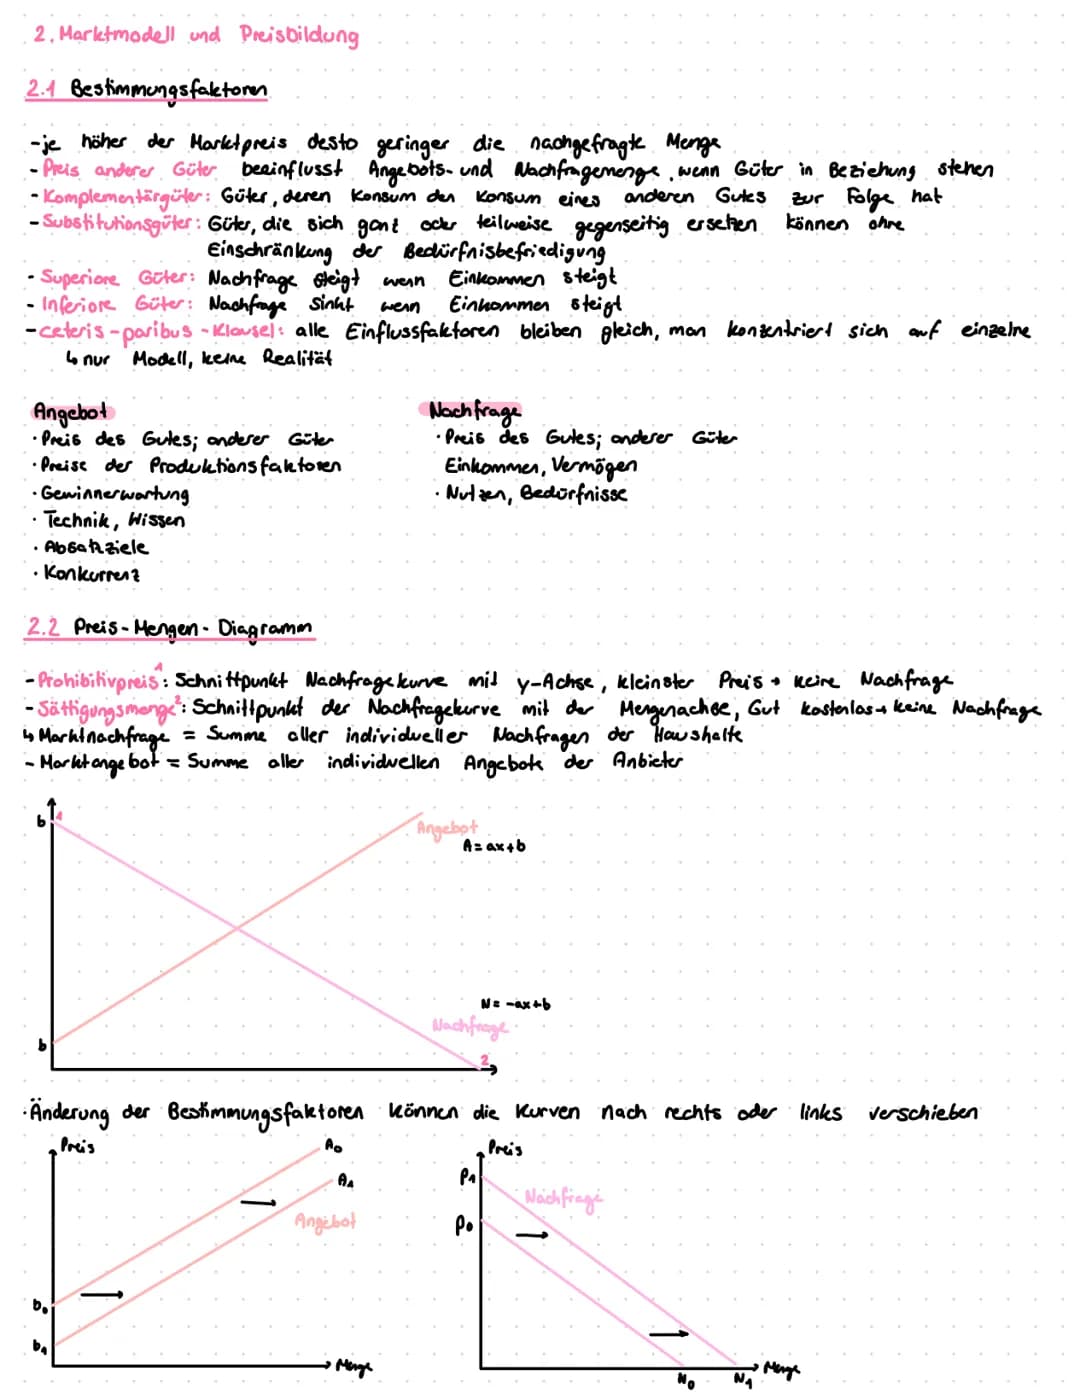 2. Marktmodell und Preisbildung
2.1 Bestimmungsfaktoren
-je höher der Marktpreis desto geringer die nachgefragte Menge
- Preis anderer Güter beeinflusst Angebots- und Nachfragemenge, wenn Güter in Beziehung stehen
- Komplementärgüter: Güter, deren Konsum den Konsum eines anderen Gutes zur Folge hat
- Substitutionsgüter: Güter, die sich ganz oder teilweise gegenseitig ersetzen können ohne
Einschränkung der Bedürfnisbefriedigung
- Superiore Güter: Nachfrage steigt wenn Einkommen steigt
- Inferiore Güter: Nachfrage sinkt wenn Einkommen steigt
- ceteris-paribus-Klausel: alle Einflussfaktoren bleiben gleich, man konzentriert sich auf einzelne
↳ nur Modell, keine Realität
Angebot
· Preis des Gutes; anderer Güter
· Preise der Produktionsfaktoren
· Gewinnerwartung
· Technik, Wissen
· Absatzziele
· Konkurrenz
Nachfrage
· Preis des Gutes; anderer Güter
Einkommen, Vermögen
· Nutzen, Bedürfnisse
2.2 Preis-Mengen-Diagramm
- Prohibitivpreis¹: Schnittpunkt Nachfragekurve mit y-Achse, kleinster Preis → keine Nachfrage
- Sättigungsmenge²: Schnittpunkt der Nachfragekurve mit der Mengenachse, Gut kostenlos → keine Nachfrage
↳ Marktnachfrage = Summe aller individueller Nachfragen der Haushalte
- Marktangebot = Summe aller individuellen Angebote der Anbieter
b 1
Angebot
A = ax+b
N = -ax+b
Nachfrage
b
2
· Änderung der Bestimmungsfaktoren können die Kurven nach rechts oder links verschieben
Preis
A₀
A₁
Angebot
b₀
b₁
Menge
Preis
P₁
Nachfrage
P₀
Menge
N₀
N₁